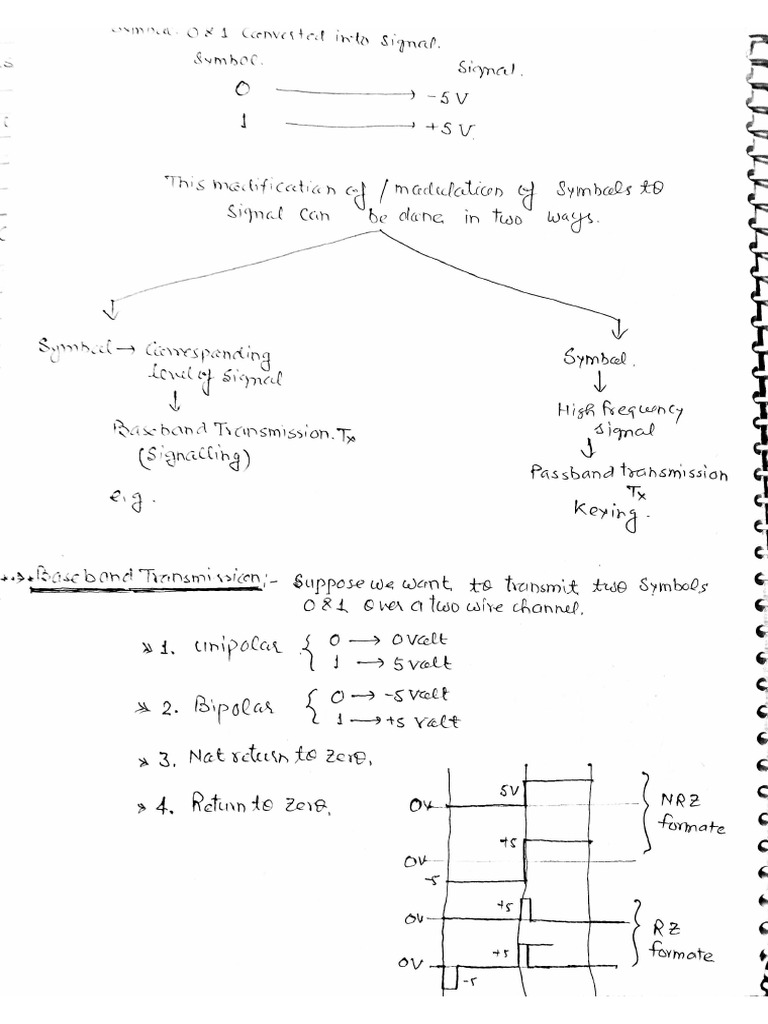 0 & 1 Converted into Signal.
Symbol. Signal.
0 → -5V
1 → +5V.
This modification of / madulation of Symbols to
Signal can be done in two ways.
Symbol → Corresponding
level of Signal
↓
Baseband Transmission. Tx
(Signalling)
e.g.
Symbol.
↓
High frequency
signal
↓
Passband transmission
Tx
Keying.
Baseband Transmission:- Suppose we want to transmit two Symbols
0 & 1 over a two wire channel.
1. unipolar { 0 → 0 valt
1 → 5 valt
2. Bipolar { 0 → -5 valt
1 → +5 valt
3. Nat return to zero,
4. Return to zero,
5V
0V
NRZ
formate
+5
0V
-5
+5
0V
RZ
formate
+5
0V
-5